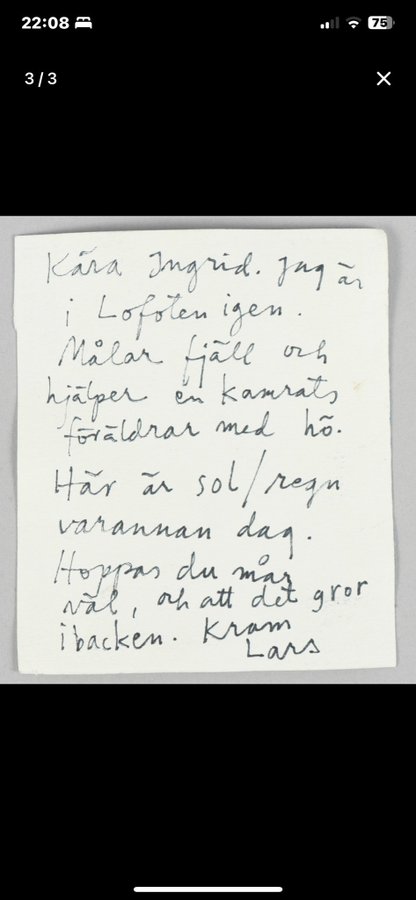 22:08
75
3/3
Kära Ingrid. Jag är
i Lofoten igen.
Målar fjäll och
hjälper en kamrats
föräldrar med hö.
Här är sol/regn
varannan dag.
Hoppas du mår
väl, och att det gror
i backen. Kram
Lars